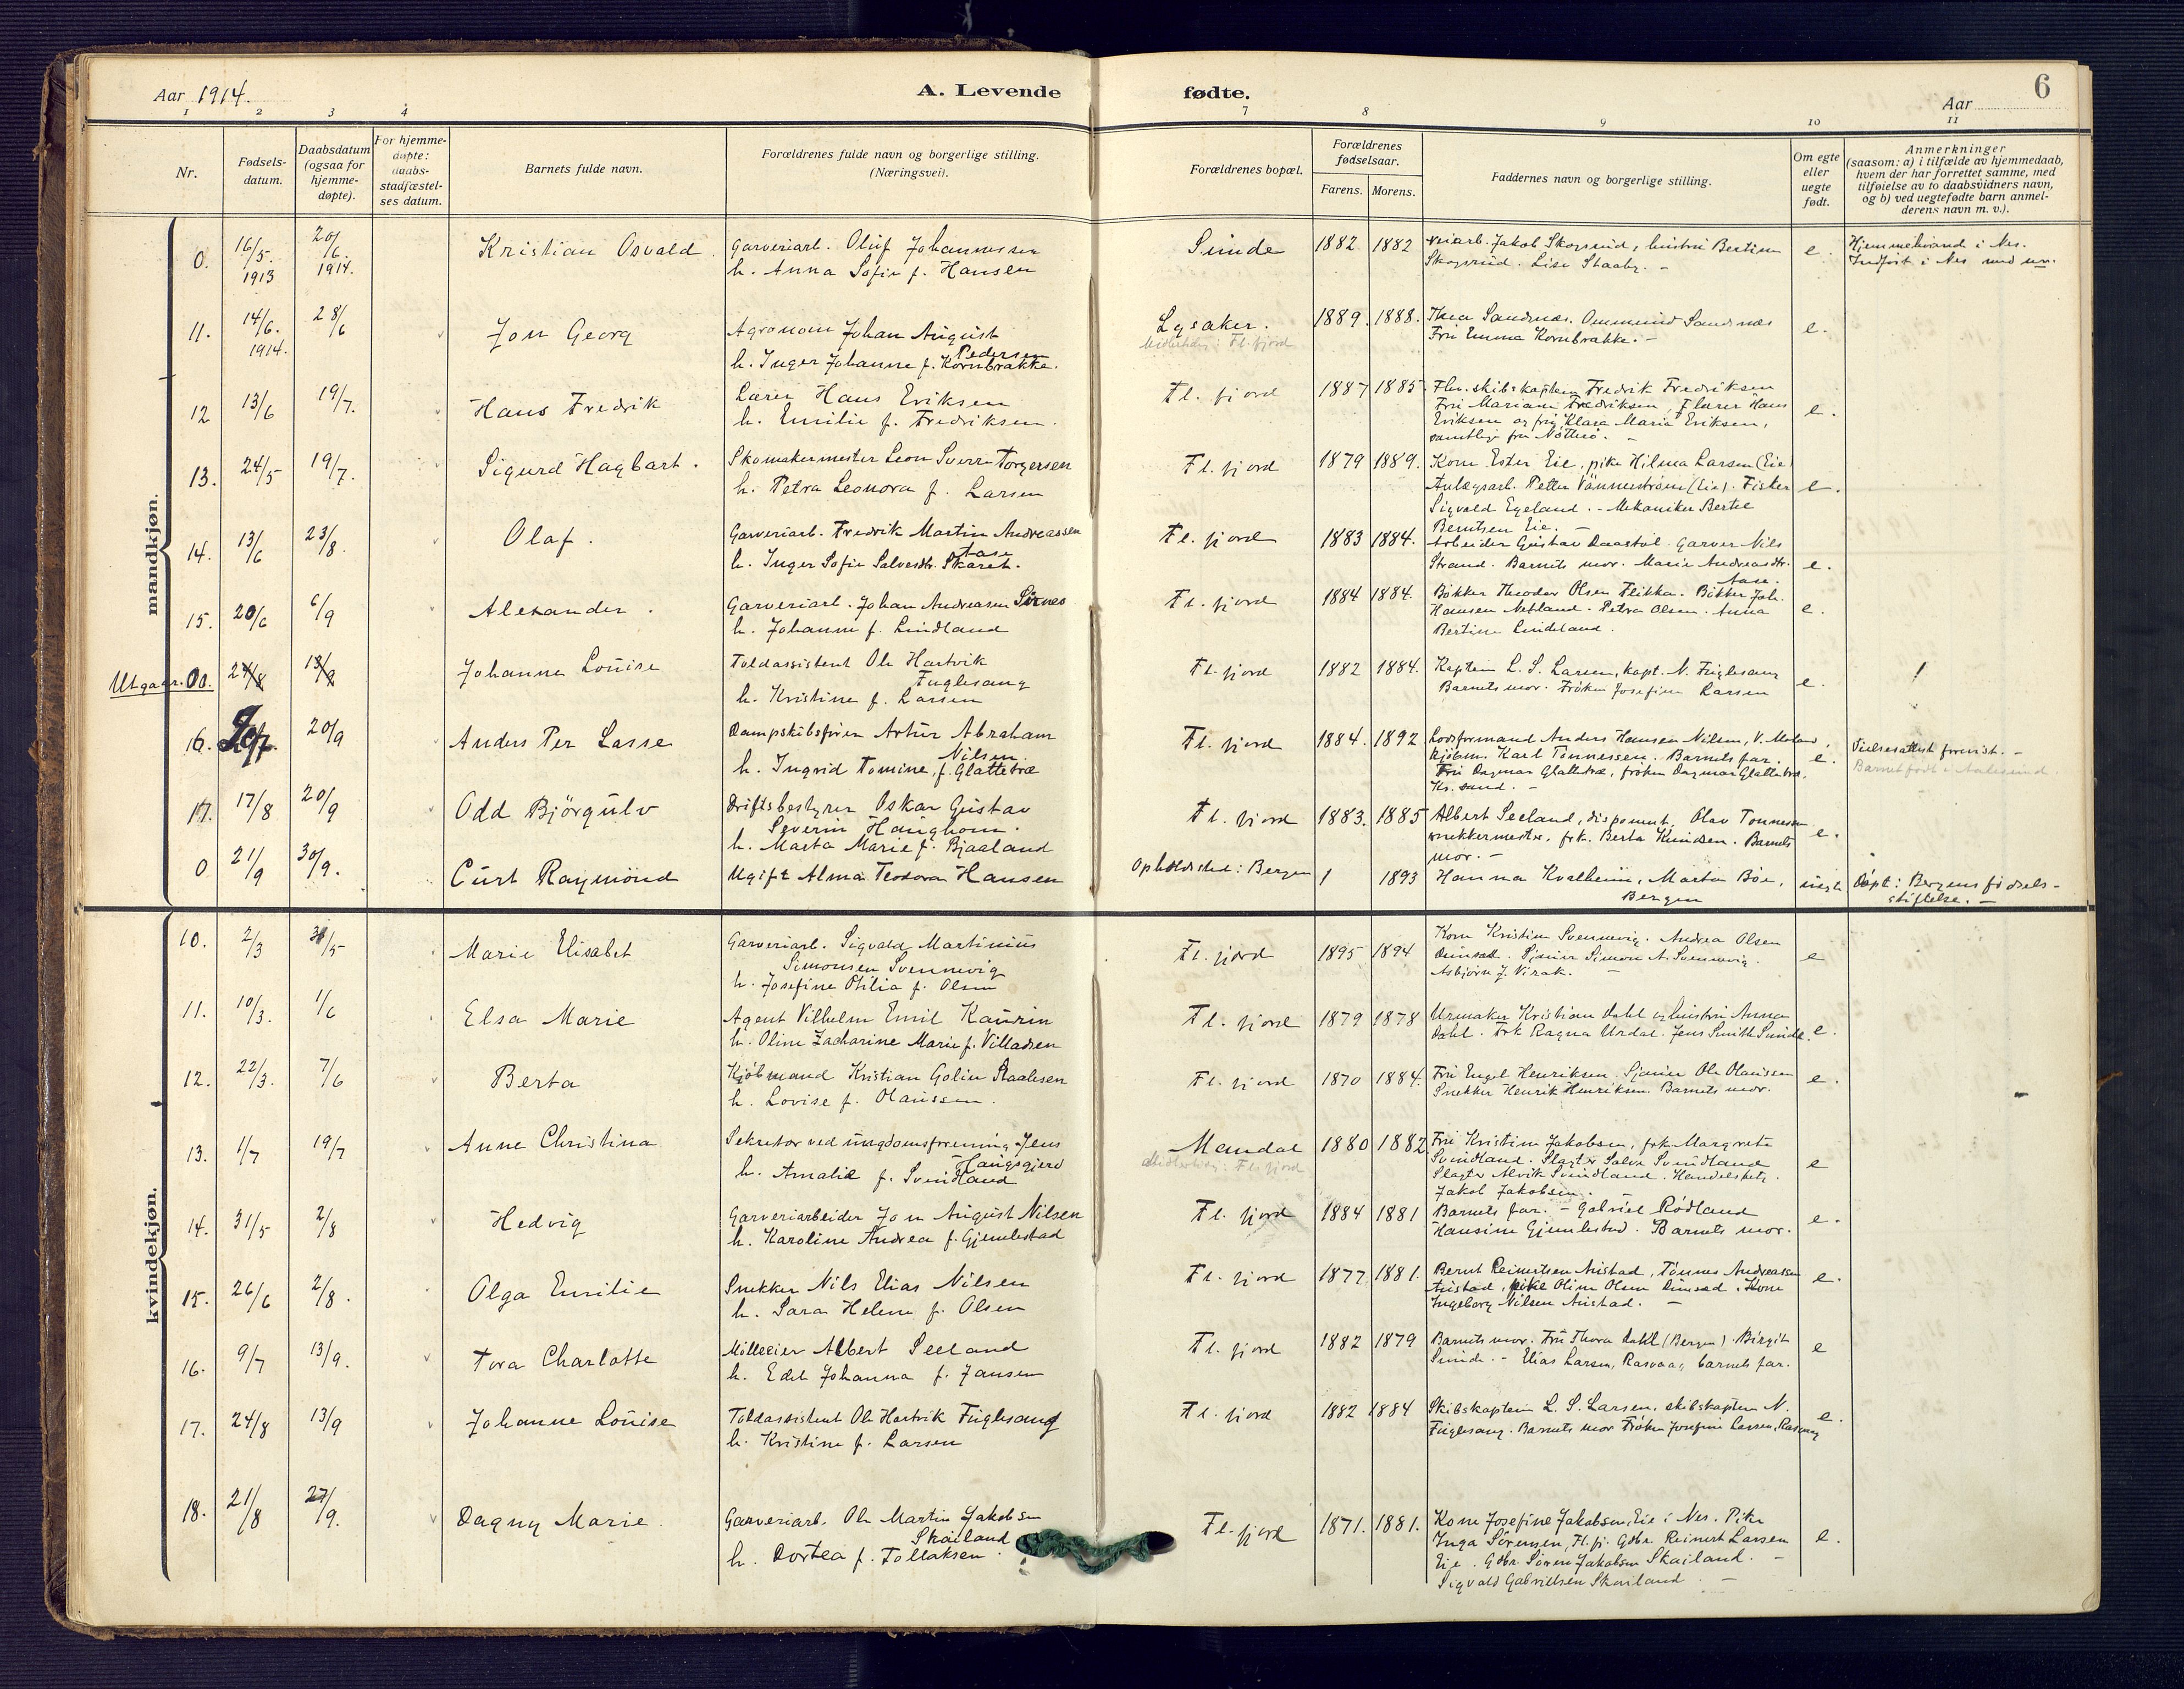 Aar 1914.
A. Levende
fødte.
Aar
6
1
2
3
4
7
8
9
10
11
Nr.
Fødsels-
datum.
Daabsdatum
(ogsaa for
hjemme-
døpte).
For hjemme-
døpte:
daabs-
stadfæstel-
ses datum.
Barnets fulde navn.
Forældrenes fulde navn og borgerlige stilling.
(Næringsvei).
Forældrenes bopæl.
Forældrenes
fødselsaar.
Farens.
Morens.
Faddernes navn og borgerlige stilling.
Om egte
eller
uegte
født.
Anmerkninger
(saasom: a) i tilfælde av hjemmedaab,
hvem der har forrettet samme, med
tilføielse av to daabsvidners navn,
og b) ved uegtefødte barn anmel-
derens navn m. v.).
mandkjøn.
0. 16/5. 1913 20/6. 1914. Kristian Osvald.
Garveriarb. Oluf Johannessen
h. Anna Sofie f. Hansen
Sunde 1882 1882
Veiarb. Jakob Skogsrud, hustru Bertine
Skogsrud. Lise Staaby. - e.
Hjemmehørende i Nes.
Indført i Nes med nr.
11. 14/6. 1914. 28/6 Jon Georg
Agronom Johan August
Pedersen
h. Inger Johanne f. Kornbrække.
Lysaker. 1889. 1888.
Midlertidig: Fl. fjord
Thea Sandnæs. Ommund Sandnæs
Fru Emma Kornbrække. - e.
12 13/6 19/7. Hans Fredrik
Lærer Hans Eriksen
h. Emilie f. Fredriksen.
Fl. fjord 1887 1885
Fhv. skibskaptein Fredrik Fredriksen
Fru Mariane Fredriksen, f lærer Hans
Eriksen og frøk Klara Marie Eriksen,
samtlige fra Nøtterø. - e.
13. 24/5 19/7. Sigurd Hagbart.
Skomakermester Leon Sverre Torgersen
h. Petra Leonora f. Larsen
Fl. fjord 1879 1889.
Kone Ester Eie, pike Hilma Larsen (Eie)
Anlægsarb. Petter Vännerström (Eie). Fisker
Sigvald Egeland. - Mekaniker Bertel
Berntsen Eie. - e.
14. 13/6 23/8. Olaf.
Garveriarb. Fredrik Martin Andreassen
Aase
h. Inger Sofie Salvesdtr. Skaret.
Fl. fjord 1883 1884.
Arbeider Gustav Daastøl. Garver Nils
Strand. Barnets mor. Marie Andreasdtr.
Aase. e.
15. 20/6 6/9 Alexander.
Garveriarb. Johan Andreasen Sirnes
h. Johanne f. Lindland
Fl. fjord 1884 1884.
Bøkker Theodor Olsen Flikka. Bøkker Joh.
Hansen Netland. Petra Olsen. Anna
Bertine Lindeland. e.
Utgaar. 00. 24/8 13/9 Johanne Louise
Toldassistent Ole Hartvik
Fuglesang
h. Kristine f. Larsen
Fl. fjord 1882 1884.
Kaptein L. S. Larsen, kapt. N. Fuglesang
Barnets mor. Frøken Josefine Larsen e.
16. 20/9 Anders Per Lasse
Dampskibsfører Artur Abraham
Nilsen
h. Ingrid Tomine, f. Glattetræ
Fl. fjord 1884. 1892
Lodsformand Anders Hansen Nilsen, V. Moland,
kjøbm. Karl Tønnessen. Barnets far.
Fru Dagmar Glattetræ, frøken Dagmar Glattetræ,
Kr. sand. - e.
Vielsesattest forevist. -
Barnet født i Aalesund.
17. 17/8 20/9 Odd Bjørgulv
Driftsbestyrer Oskar Gustav
Severin Haughom.
h. Marta Marie f. Bjaaland
Fl. fjord 1883. 1885
Albert Seeland, disponent, Olav Tønnessen
snekkermester, frk. Berta Knudsen. Barnets
mor. - e.
0 21/9 30/9. Curt Raymond
Ugift Alma Teodora Hansen
Opholdssted: Bergen 1893
Hanna Kvalheim, Marta Bøe,
Bergen uegte
Døpt: Bergens fødsels-
stiftelse. -
kvindekjøn.
10. 2/3 31/5 Marie Elisabet
Garveriarb. Sigvald Martinius
Simonsen Svennevig
h. Josefine Otilia f. Olsen
Fl. fjord 1895 1894
Kone Kristine Svennevig. Andrea Olsen
Dunsæd. Sjømer Simon A. Svennevig.
Asbjørn J. Virak. - e
11. 10/3. 1/6 Elsa Marie
Agent Vilhelm Emil Kaurin
h. Oline Zacharine Marie f. Villadsen
Fl. fjord 1879 1878
Urmaker Kristian Dahl og hustru Anna
Dahl. Frk Ragna Urdal. Jens Smith Sunde. e.
12. 22/3. 7/6 Berta
Kjøbmand Kristian Golin Staalesen
h. Lovise f. Olaussen.
Fl. fjord 1870 1884.
Fru Engel Henriksen. Sjømer Ole Olaussen
Snekker Henrik Henriksen. Barnets mor. e.
13. 1/7 19/7 Anne Christina
Sekretær ved ungdomsforening Jens
Haugsgjerd
h. Amalie f. Svindland
Mandal 1880 1882
Midlertidig: Fl. fjord
Fru Kristine Jakobsen, frk. Margrete
Svindland. Slagter Salve Svindland
Slagter Alvik Svindland. Handelsbetj.
Jakob Jakobsen. - e
14. 31/5 2/8 Hedvig
Garveriarbeider Jon August Nilsen
h. Karoline Andrea f. Gjemlestad
Fl. fjord 1884 1881
Barnets far. - Gabriel Rødland
Hansine Gjemlestad. Barnets mor. e.
15. 26/6 2/8. Olga Emilie
Snekker Nils Elias Nilsen
h. Sara Helene f. Olsen
Fl. fjord 1877 1881.
Bernt Reinertsen Austad, Tønnes Andreassen
Austad, pike Oline Olsen Dunsæd. Kone
Ingeborg Nilsen Austad. - e.
16. 9/7 13/9. Tora Charlotte
Mølleeier Albert Seeland
h. Edel Johanna f. Jansen
Fl. fjord 1882 1879
Barnets mor. Fru Thora Dahl (Bergen). Birgit
Sunde. - Elias Larsen, Rasvaag, barnets far. e
17. 24/8 13/9 Johanne Louise
Toldassistent Ole Hartvik Fuglesang
h. Kristine f. Larsen
Fl. fjord 1882 1884
Skibskaptein L. S. Larsen, skibskaptein N.
Fuglesang. Barnets mor Frøken Josefine Larsen, Rasvaag e.
18. 21/8 27/9. Dagny Marie.
Garveriarb. Ole Martin Jakobsen
Skailand
h. Dortea f. Tollaksen.
Fl. fjord 1871. 1881.
Kone Josefine Jakobsen, Eie i Nes. Pike
Inga Sørensen, Fl. fj. Gdbr. Reinert Larsen
Eie. Gdbr. Søren Jakobsen Skailand. -
Sigvald Gabrielsen Skailand. - e.